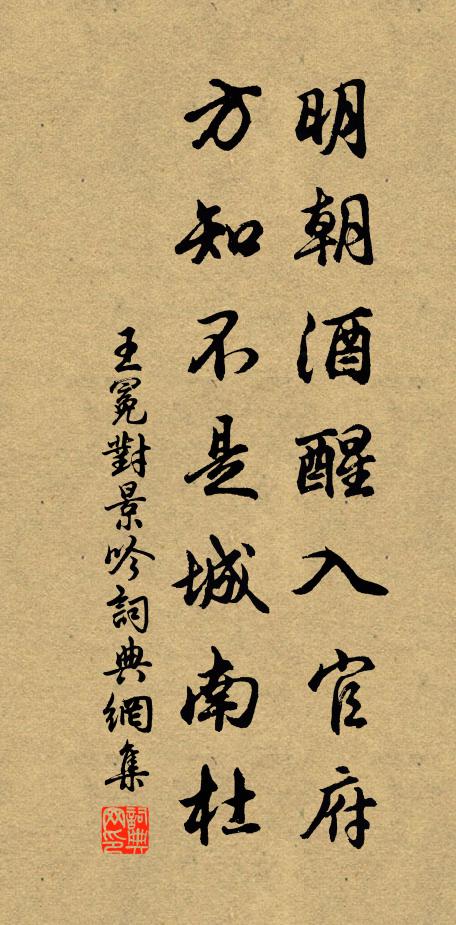 明朝酒醒入官府
方知不是城南杜
王冕對景吟詞典網集
詞典
网印